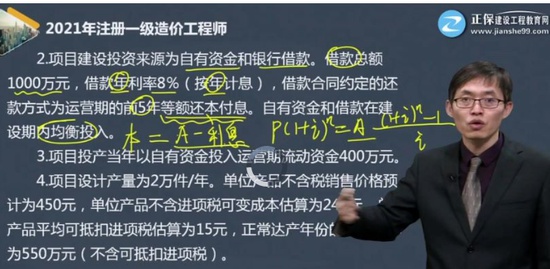 2021年注册一级造价工程师
正保建设工程教育网
www.jianshe99.com
2.项目建设投资来源为自有资金和银行借款。借款总额
1000万元，借款年利率8%（按年计息），借款合同约定的还
款方式为运营期的前5年等额还本付息。自有资金和借款在建
设期内均衡投入。
本=A-利息 P(1+i)ⁿ=A (1+i)ⁿ-1/i
3.项目投产当年以自有资金投入运营期流动资金400万元。
4.项目设计产量为2万件/年。单位产品不含税销售价格预
计为450元，单位产品不含进项税可变成本估算为24
产品平均可抵扣进项税估算为15元，正常达产年份的
为550万元（不含可抵扣进项税）。